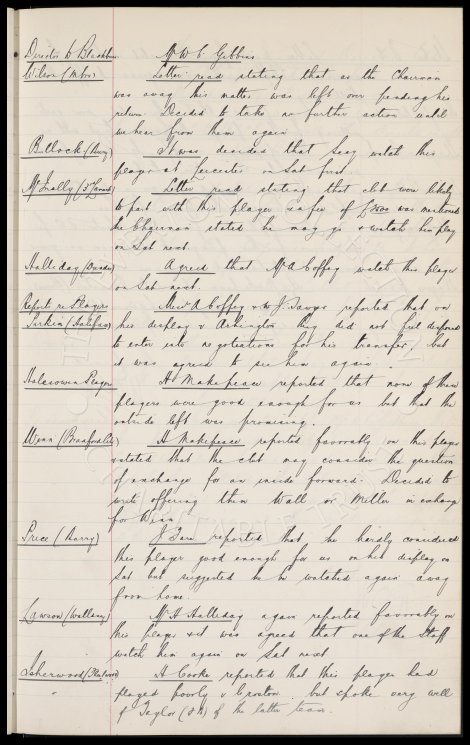 Director to Blackburn Mr W C Gibbins
Wilson (Mbro) Letter read stating that as the Chairman
was away this matter was left over pending his
return. Decided to take no further action until
we hear from them again
Bullock (Bury) It was decided that Seay watch this
player at Leicester on Sat first.
McInally (3rd Lanark) Letter read stating that clb were likely
to part with this player & a fee of £ was mentioned
the Chairman stated he may go & watch him play
on Sat next.
Halliday (Dundee) Agreed that Mr A Coffey watch this player
on Sat next.
Report re Players Messrs A Coffey & J Sawyer reported that on
Sirkin (Halifax) his display v Accrington they did not feel disposed
to enter into negotiations for his transfer, but
it was agreed to see him again.
Halesowen Players H Makepeace reported that none of these
players were good enough for us but that the
outside left was promising.
Wenn (Bradford City) H Makepeace reported favorably on this player
& stated that the clb may consider the question
of exchange for an inside forward. Decided to
write offering them Wall or Miller in exchange
for Wenn.
Price (Barry) J reported that he hardly considered
this player good enough for us on his display on
Sat but suggested he be watched again away
from home.
Lawson (Wallasey) Mr H Halliday again reported favorably on
this player & it was agreed that one of the Staff
watch him again on Sat next
Isherwood (Fleetwood) H Cooke reported that this player had
" played poorly v Croston, but spoke very well
of Taylor of the latter team.